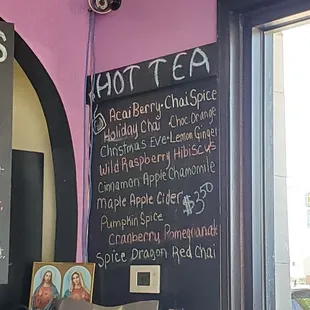 S
HOT TEA
Acai Berry · Chai Spice
Holiday Chai Choc Orange
Christmas Eve · Lemon Ginger
Wild Raspberry Hibiscus
Cinnamon Apple Chamomile
Maple Apple Cider $3.50
Pumpkin Spice
Cranberry Pomegranate
Spice Dragon Red Chai